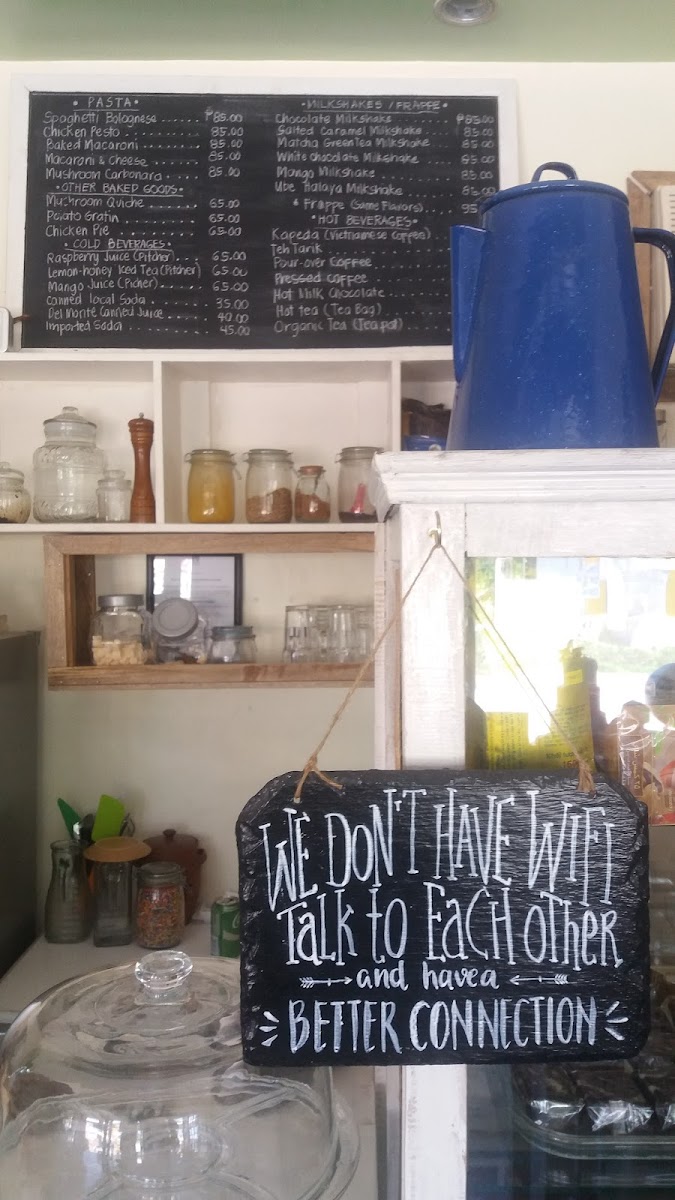 • PASTA •
Spaghetti Bolognese ...... ₱85.00
Chicken Pesto .......... 85.00
Baked Macaroni ........ 85.00
Macaroni & Cheese ...... 85.00
Mushroom Carbonara .... 85.00
• OTHER BAKED GOODS •
Mushroom Quiche ........ 65.00
Potato Gratin ........ 65.00
Chicken Pie ........ 65.00
• COLD BEVERAGES •
Raspberry Juice (Pitcher) ... 65.00
Lemon-honey Iced Tea (Pitcher) 65.00
Mango Juice (Picher) ..... 65.00
canned local Soda ....... 35.00
Del Monte Canned Juice .... 40.00
Imported Soda ........ 45.00
• MILKSHAKES / FRAPPE •
Chocolate Milkshake ...... ₱85.00
Salted Caramel Milkshake .... 85.00
Matcha Green Tea Milkshake 85.00
White Chocolate Milkshake 85.00
Mango Milkshake ...... 85.00
Ube Halaya Milkshake
* Frappe (Same Flavors) .... 95
• HOT BEVERAGES •
Kapeda (Vietnamese Coffee)
Teh Tarik
Pour-over Coffee
Pressed coffee
Hot Milk Chocolate
Hot tea (Tea Bag)
Organic Tea (Tea pot)
WE DON'T HAVE WIFI
TaLK to EaCH oTHeR
and have a
BETTER CONNECTION